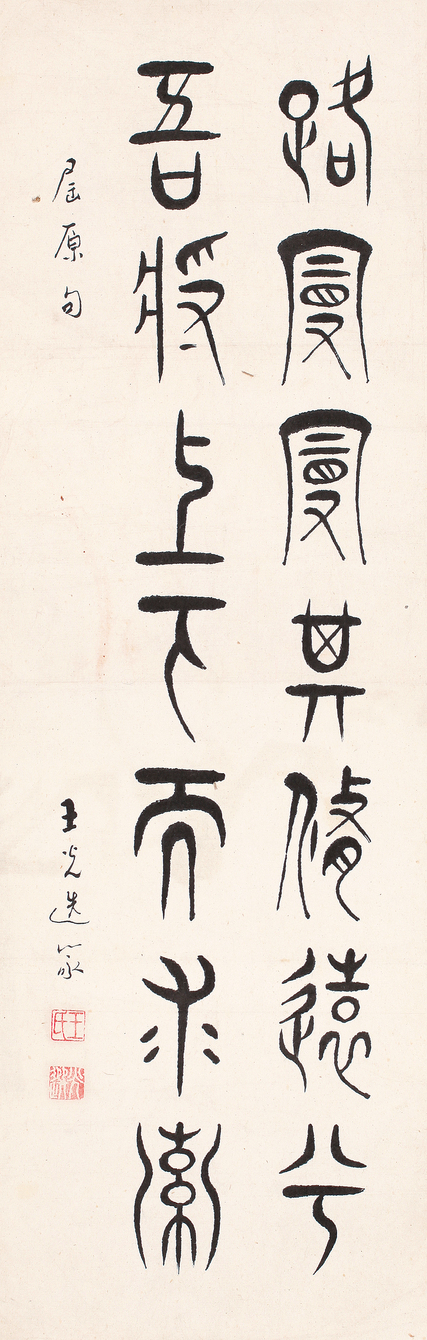 路曼曼其脩遠兮
吾將上下而求索
屈原句
王光篆
王氏